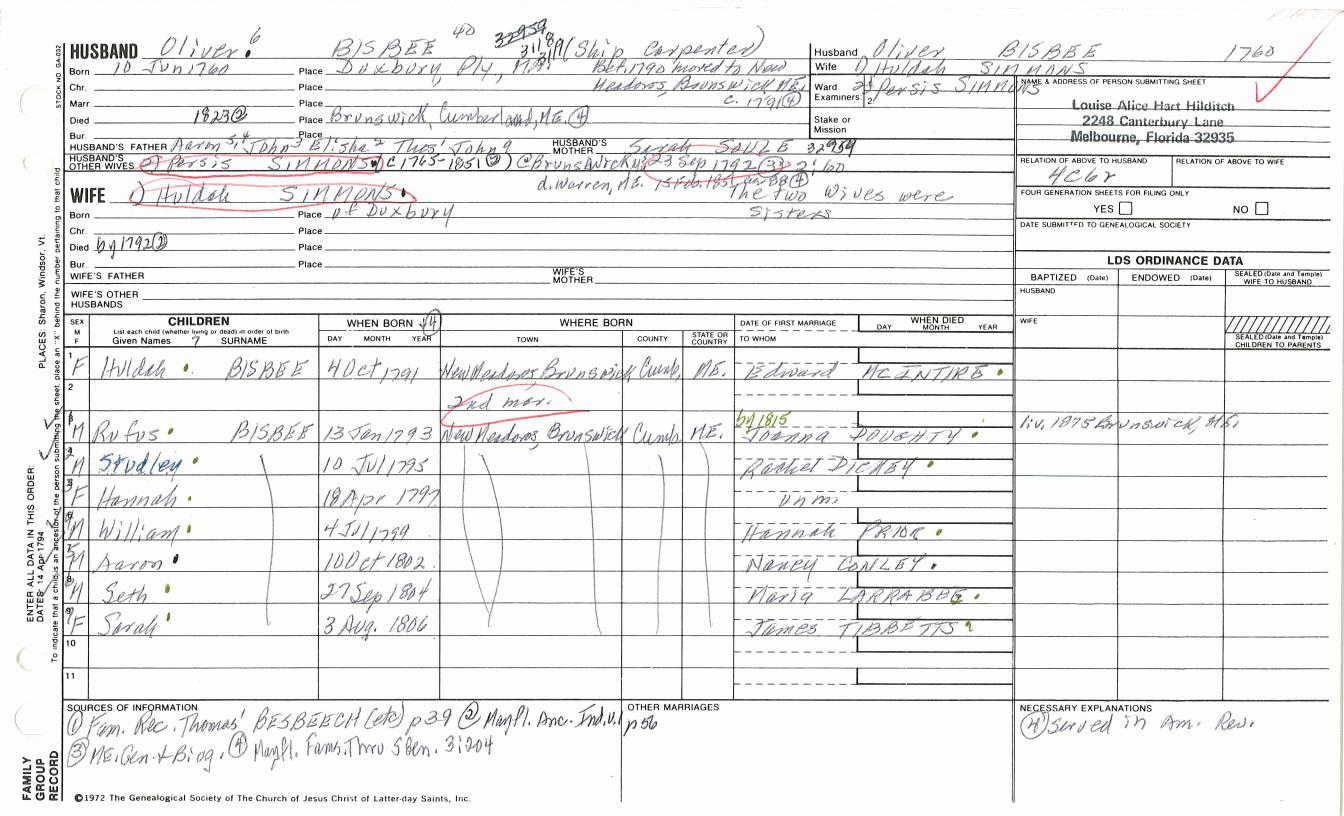 HUSBAND Oliver 6 BISBEE 40 32959 (Ship Carpenter)
Born 10 Jun 1760 Place Duxbury, Ply, MA. Bef. 1790 moved to New
Chr. Place Meadows, Brunswick, ME,
Marr Place c. 1791 ④
Died 1823 ② Place Brunswick, Cumberland, ME. ④
Bur. Place
HUSBAND'S FATHER Aaron 5,4 John 3 Elisha 2 Thos' John 9 HUSBAND'S MOTHER Sarah SOULE 32959
HUSBAND'S OTHER WIVES 2) Persis SIMMONS (c 1765-1851 ③) @ Brunswick 23 Sep 1792 ③ 2:160
d. Warren, ME. 15 Feb. 1851 88 ④
WIFE 1) Huldah SIMMONS The two wives were
Born Place of Duxbury sisters
Chr. Place
Died by 1792 ② Place
Bur Place
WIFE'S FATHER WIFE'S MOTHER
WIFE'S OTHER HUSBANDS
Husband Oliver BISBEE 1760
Wife 1) Huldah SIMMONS
Ward Examiners: 2) Persis SIMMONS
Stake or Mission
NAME & ADDRESS OF PERSON SUBMITTING SHEET
Louise Alice Hart Hilditch
2248 Canterbury Lane
Melbourne, Florida 32935
RELATION OF ABOVE TO HUSBAND RELATION OF ABOVE TO WIFE
4C6r
FOUR GENERATION SHEETS FOR FILING ONLY
YES NO
DATE SUBMITTED TO GENEALOGICAL SOCIETY
LDS ORDINANCE DATA
BAPTIZED (Date) ENDOWED (Date) SEALED (Date and Temple) WIFE TO HUSBAND
HUSBAND
WIFE
SEALED (Date and Temple) CHILDREN TO PARENTS
SEX M F CHILDREN WHEN BORN ④ WHERE BORN DATE OF FIRST MARRIAGE WHEN DIED
List each child (whether living or dead) in order of birth
Given Names 7 SURNAME DAY MONTH YEAR TOWN COUNTY STATE OR COUNTRY TO WHOM DAY MONTH YEAR
1 F Huldah BISBEE 4 Oct 1791 New Meadows, Brunswick Cumb, ME. Edward McINTIRE
2 2nd mar.
3 M Rufus BISBEE 13 Jan 1793 New Meadows, Brunswick Cumb ME. by 1815 Joanna DOUGHTY liv. 1875 Brunswick, ME.
M Studley 10 Jul 1795 Rachel DICKEY
F Hannah 18 Apr 1797 unm.
M William 4 Jul 1799 Hannah PRIOR
M Aaron 10 Oct 1802 Nancy CONLEY
8 M Seth 27 Sep 1804 Maria LARRABEE
9 F Sarah 3 Aug. 1806 James TIBBETTS
10
11
SOURCES OF INFORMATION OTHER MARRIAGES NECESSARY EXPLANATIONS
① Fam. Rec. Thomas' BESBEECH (etc) p 39 ② Mayfl. Anc. Ind. v.1 p 56
③ ME. Gen. & Biog. ④ Mayfl. Fams. Thru 5 Gen. 3:204
④ Served in Am. Rev.
©1972 The Genealogical Society of The Church of Jesus Christ of Latter-day Saints, Inc.
STOCK NO. GA-032
ENTER ALL DATA IN THIS ORDER:
DATES: 14 Apr 1794
PLACES: Sharon, Windsor, Vt.
To indicate that a child is an ancestor of the person submitting the sheet, place an "X" behind the number pertaining to that child
FAMILY
GROUP
RECORD